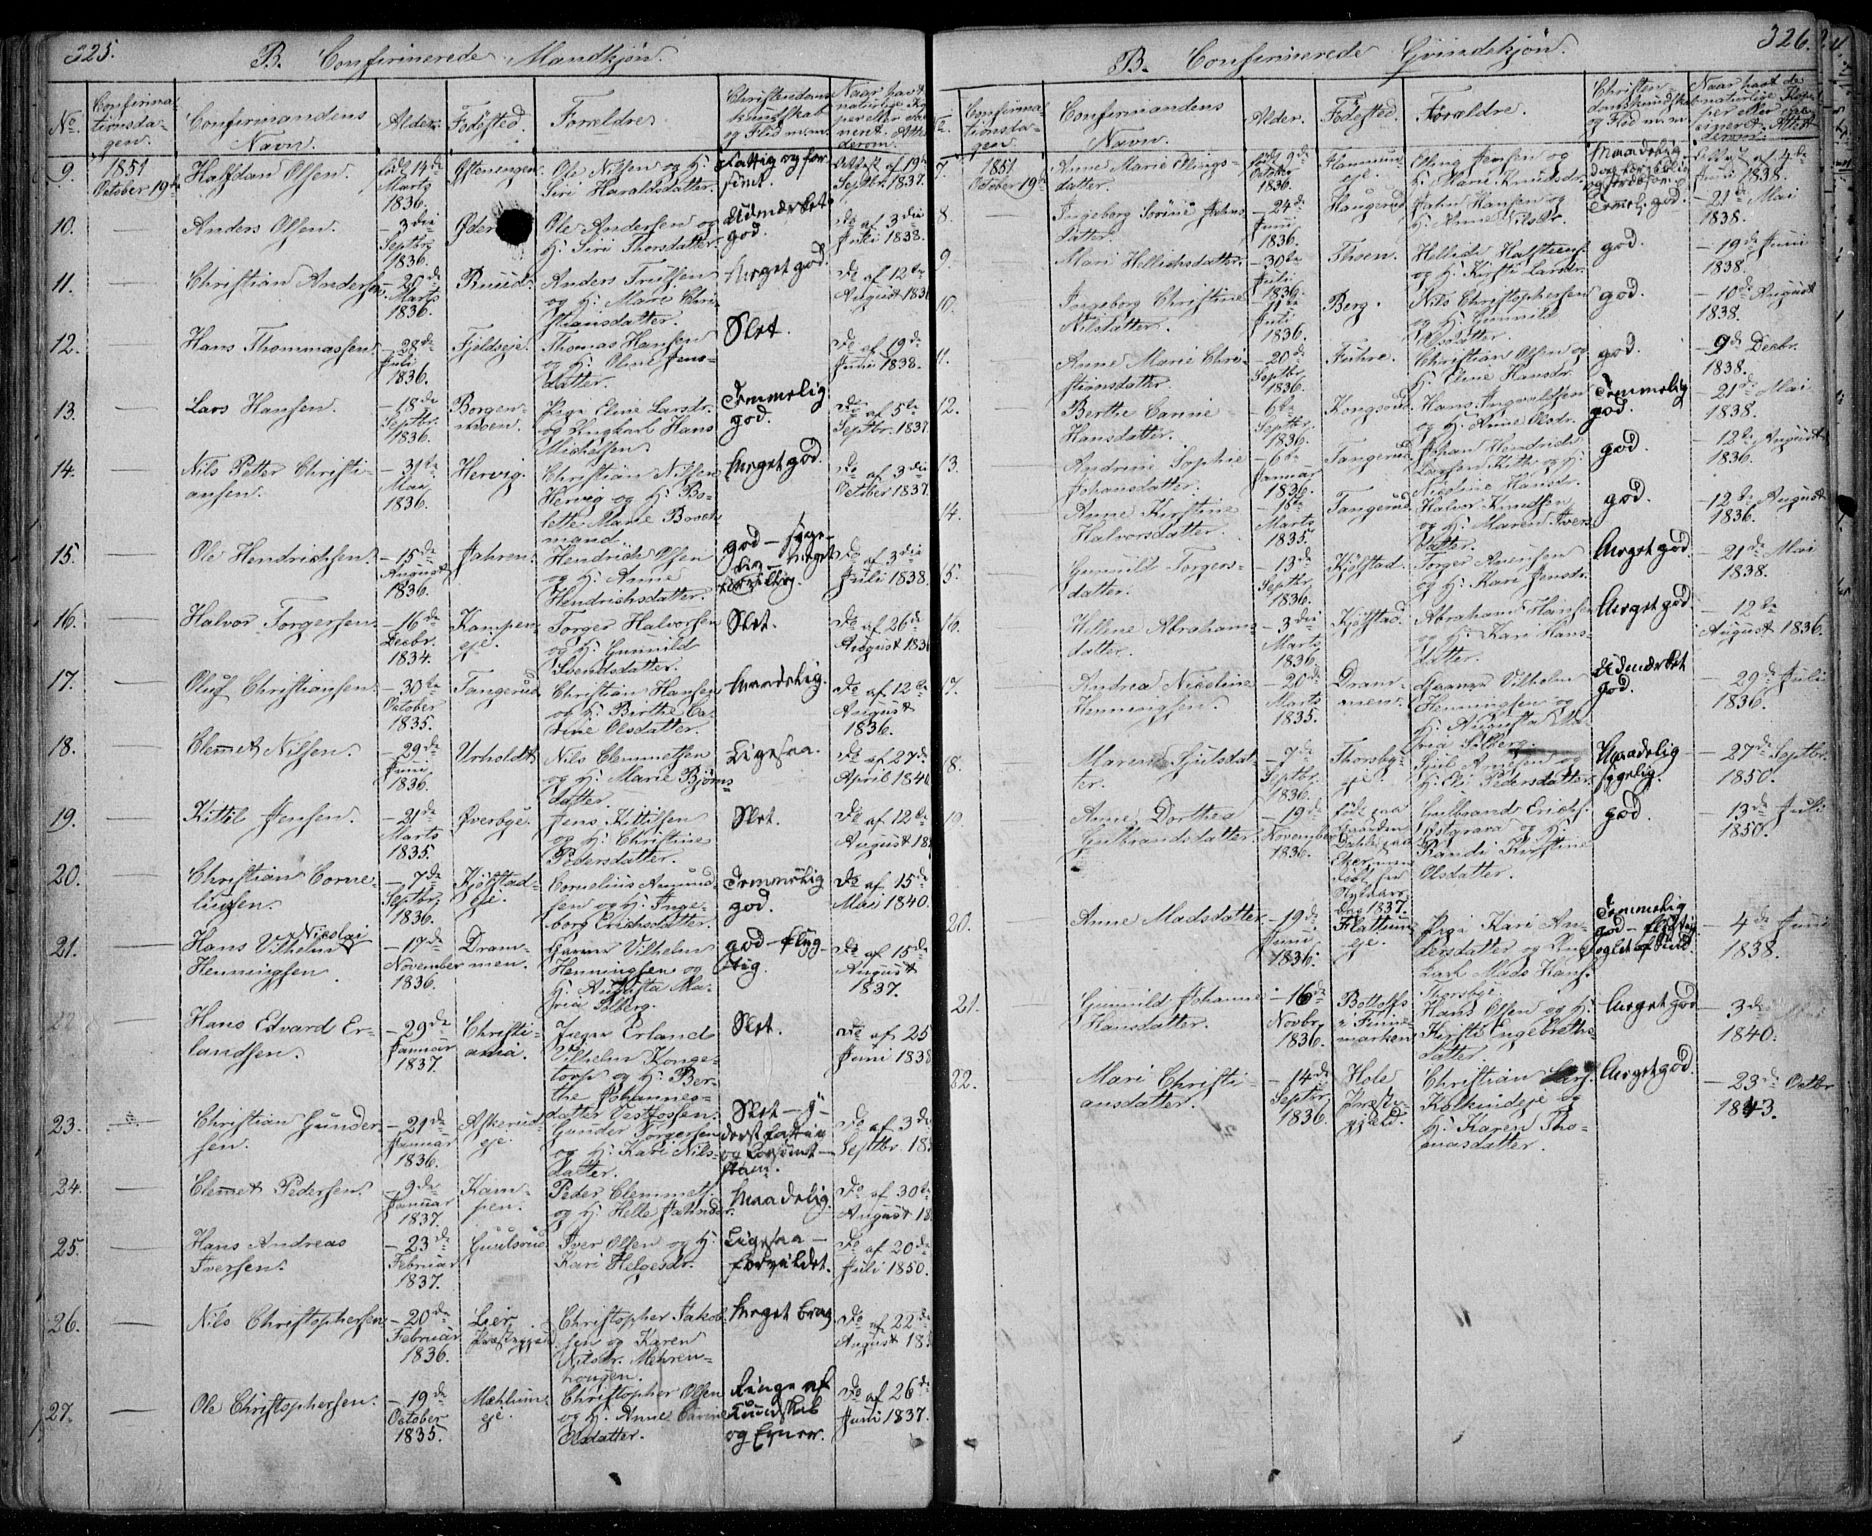 325.
B. Confirmerede Mandkjøn.
No.
Confirma-
tionsda-
gen.
Confirmandens
Navn.
Alder.
Fødested.
Forældre.
Christendoms
kundskab
og Flid m.m.
9.
1851
October 19de
Halfdan Olsen.
født 14de
Marts
1836.
Ole Nilsen og H:
Siri Haraldsdatter.
Attest af 19de
Septbr. 1837.
10.
Anders Olsen.
- 3die
Septbr.
1836.
Ole Andersen og
H: Siri Thorsdatter.
Udmærket
god.
Do af 3die
Juli 1838.
11.
Christian Andersen
- 20de
Marts
1836.
Ruud.
Anders Trulsen
og H: Mari Chri-
stiansdatter.
Meget god.
Do af 12te
August
12.
Hans Thommassen.
- 28de
Juli
1836.
Fjeldseje.
Thomas Hansen
og H: Oline Jens-
datter.
Slet.
Do af 19de
Juni 1838.
13.
Lars Hansen.
- 18de
Septbr.
1836.
Borgen-
moen.
Pige Eline Larsdr.
og Ungkarl Hans
Michelsen.
Temmelig
god.
Do af 5te
Septbr. 1837.
14.
Nils Petter Christi-
ansen.
- 31te
Mai
1836.
Hervig.
Christian Nilsen
Herveg og H: Bo-
lette Marie Brock-
mand.
Meget god.
Do af 3die
October 1837.
15.
Ole Hendrichsen.
- 15de
August
1836.
Jahren.
Hendrich Olsen
og H: Anne
Hendrichsdatter.
god - syge-
lig - meget
Do af 3die
Juli 1838.
16.
Halvor Torgersen.
- 16de
Decbr.
1834.
Kampen-
eje.
Torger Halvorsen
og H: Gunnild
Svendsdatter.
Slet.
Do af 26de
August
17.
Oluf Christiansen.
- 30te
October
1835.
Tangerud.
Christian Hansen
og H: Birthe Ca-
trine Olsdatter.
Maadelig.
Do af 12te
August
1836.
18.
Clemet Nilsen.
- 29de
Juni
1836.
Urholdt.
Nils Clemmetsen
og H: Marie Bjørns-
datter.
Ligesaa.
Do af 27de
April
19.
Kittil Jensen.
- 21de
Marts
1835.
Øverbye.
Jens Kittilsen
og H: Christine
Pedersdatter.
Slet.
Do af 12te
August
20.
Christian Corne-
liusen.
- 7de
Septbr.
1836.
Kjølstad-
eje.
Cornelius Amund-
sen og H: Inge-
borg Erichsdatter.
Temmelig
god.
Do af 15de
Mai 1840.
21.
Hans Vilhelm Nicolai
Henningsen.
- 17de
November
1836.
Dram-
men.
Vilhelm
Henningsen og
H: Augusta Ma-
ria Solberg.
god - flyg-
tig.
Do af 15de
August
1837.
22.
Hans Edvard Er-
landsen.
- 29de
Januar
1837.
Christi-
ania.
Erland
Vilhelm Konge-
torp og H: Ber-
the Johannes-
datter Vestfossen.
Slet.
Do af 25
Juni 1838
23.
Christian Gunder-
sen.
- 21de
Januar
1836.
Askerud-
eje.
Gunder Torgersen
og H: Kari Nils-
datter.
Slet - y-
derst
Do af 3die
Septbr.
24.
Clemet Pedersen.
- 9de
Januar
1837.
Kam-
pen.
Peder Clemmets.
og H: Helle
Maadelig.
Do af 30te
August
25.
Hans Andreas
Iversen.
- 23de
Februar
1837.
Guulsrud
Iver Olsen og H:
Kari Helgesdr.
Ligesaa -
forvildet.
Do af 20de
Juli 1850.
26.
Nils Christophersen
- 20de
Februar
1836.
Lier
Præstegjæld
Christopher Jakob-
sen og Karen
Nilsdr. Mehren-
hougen.
Meget svag
Do af 22de
August
27.
Ole Christophersen.
- 19de
October
1835.
Mæhlum-
eje.
Christopher Olsen
og H: Anne Carine
Olsdatter.
Ringe af
Kundskab
og Evner.
Do af 26de
Juni 1837.
326.
B. Confirmerede Qvindekjøn.
Confirma-
tionsda-
gen.
Confirmandens
Navn.
Alder.
Fødested.
Forældre.
Christen-
domskundskab
og Flid m.m.
7.
1851
October 19de
Anne Marie Ellings-
datter.
født 9de
October
1836.
Elling Jensen og
H: Marie Knudsdr.
Maadelig
Attest af 4de
Juni 1838.
8.
Ingeborg Sorine Jahns-
datter.
- 24de
Juni
1836.
Haugerud.
Jahn Hansen og
H: Anne Nilsdtr.
Temmel. god.
- 21de Mai
1838.
9.
Mari Hellichsdatter.
- 30te
Juli
1836.
Thoen.
Hellich Halstens.
og H: Kirsti Larsdr.
god.
- 19de Juni
1838.
10.
Ingeborg Christine
Nilsdatter.
- 11te
Juli
1836.
Berg.
Nils Christophersen
og H: Gunnild
Olsdatter.
god.
- 10de August
1838.
11.
Anne Marie Chri-
stiansdatter.
- 20de
Septbr.
1836.
Fuhre.
Christian Olsen og
H: Eline Hansdr.
god.
- 9de Decbr.
1838.
12.
Berthe Carine
Hansdatter.
- 6te
Septbr.
1836.
Kongsrud.
Hans Ingvaldsen
og H: Anne Olsdr.
Temmelig
god.
- 21de Mai
1838.
13.
Andrine Sophie
Johansdatter.
- 6te
Januar
1836.
Tangerud.
Johan Hendrich
Larsen Kitte og H:
Nicoline Hansdr.
god.
- 12te August
1836.
14.
Anne Kirstine
Halvorsdatter.
- 18de
Marts
1835.
Tangerud.
Halvor Knudsen
og H: Maren Ivers-
datter.
god.
- 12te August
1836.
15.
Gunnild Torgers-
datter.
- 13de
Septbr.
1836.
Kjølstad.
Torger Evensen
og H: Kari Jensdr.
Meget god
- 21de Mai
1838.
16.
Hellene Abrahams-
datter.
- 3die
Marts
1836.
Kjølstad.
Abraham Hansen
og H: Kari Hans-
datter.
Meget god
- 12te
August 1836.
17.
Andrea Nicoline
Henningsen.
- 20de
Marts
1835.
Dram-
men.
Vilhelm
Henningsen og
H: Augusta Ma-
ria Solberg.
Udmærket
god.
- 29de Juli
1836.
18.
Maren Hjulsdat-
ter.
- 7de
Septbr.
1836.
Thorsby-
eje.
Hjul Arnesen og
H: Eli Pedersdatter.
Maadelig -
sygelig.
- 27de Septbr.
1850.
19.
Anne Dorthea
Gulbrandsdatter.
- 19de
November
1836.
født paa
Gaarden
Gulbrand Erichs.
Østgrava og H:
Randi Kirstine
Olsdatter.
god.
- 13de Juli
1850.
20.
Anne Madsdatter.
- 19de
Juni
1836.
Flattum-
eje.
Pige Kari An-
dersdatter og Ung-
karl Mads Hans.
Thorsbye.
Temmelig
god - flittig
- 4de Juni
1838.
21.
Gunnild Johanne
Hansdatter.
- 16de
Novbr.
1836.
Bottolfs
i Finne-
marken
Hans Olsen og H:
Kirsti Engebreths-
datter.
Meget god
- 3die
1840.
22.
Mari Christi-
ansdatter.
- 14de
Septbr.
1836.
Hole
Præste-
gjæld.
Christian Lars.
Kolkindeje og
H: Karen Tho-
masdatter.
Meget god.
- 23de Octbr.
1843.